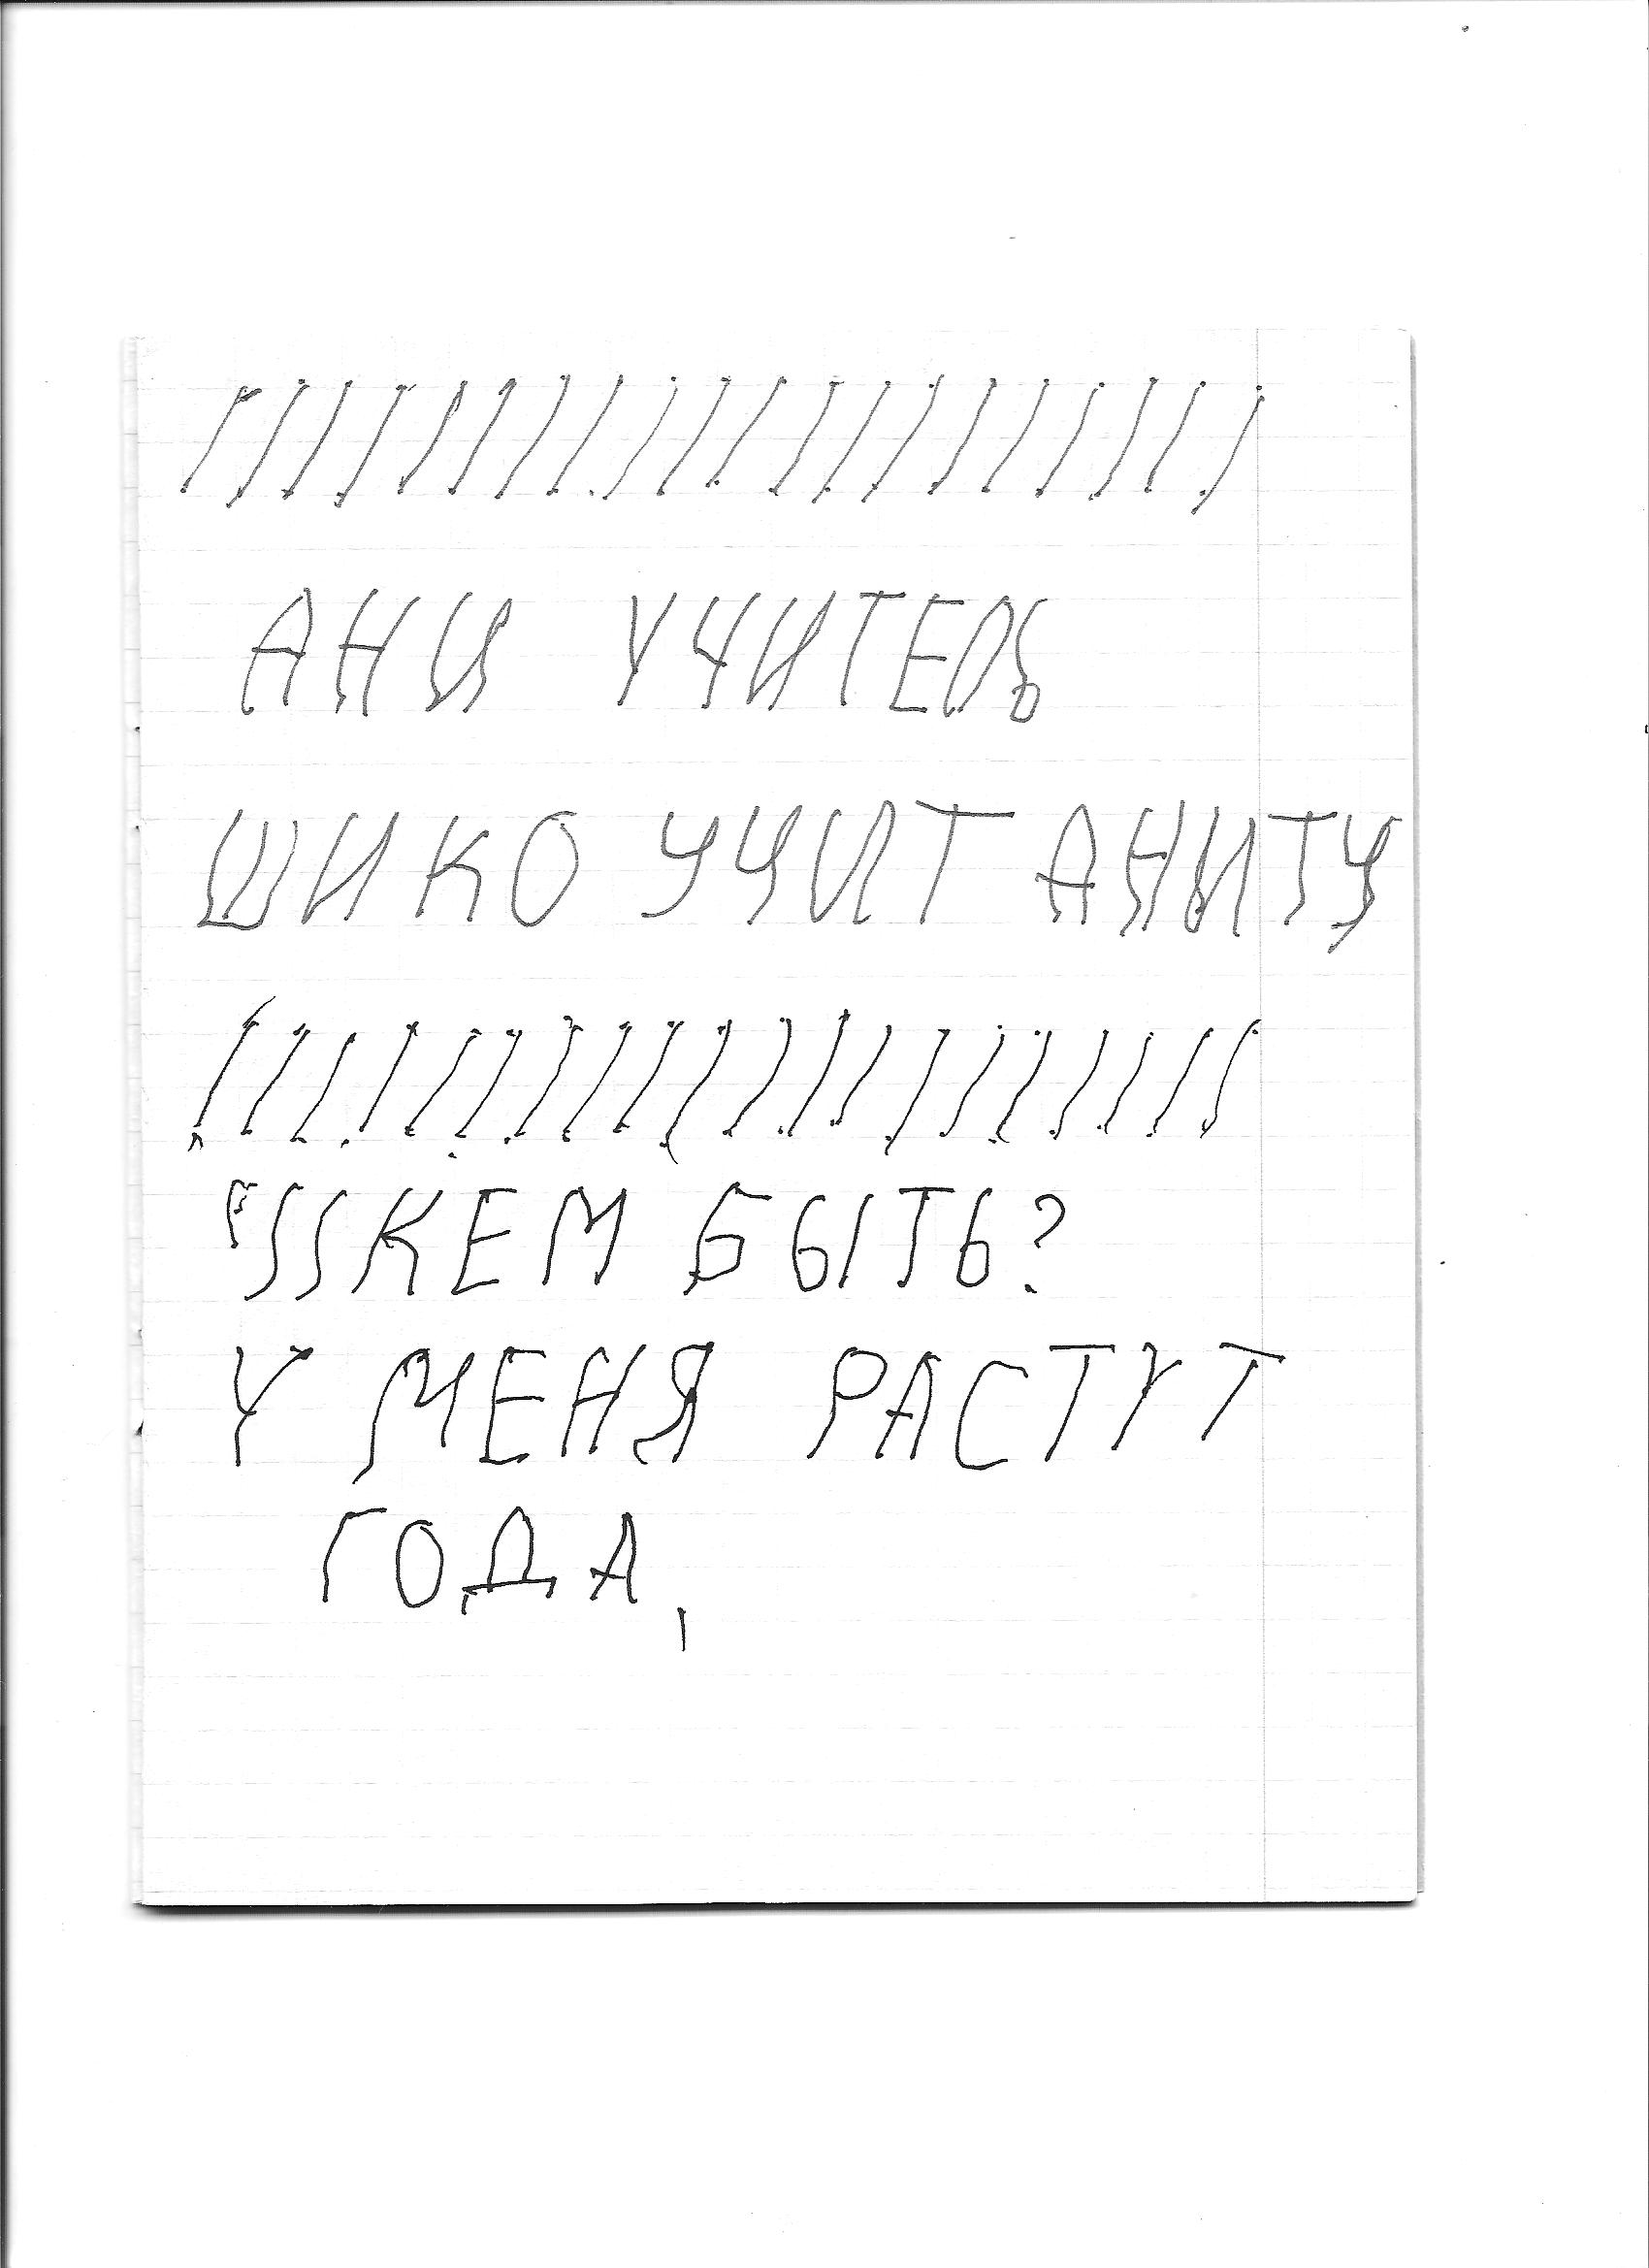 АНИ УЧИТЕЛЬ
ШИКО УЧИТ АНИТУ
КЕМ БЫТЬ?
У МЕНЯ РАСТУТ
ГОДА,